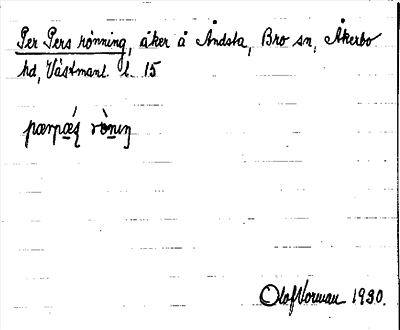 Per Pers rönning, åker å Åndsta, Bro sn, Åkerbo
hd, Västmanl. l. 15
Olof Norman 1930.